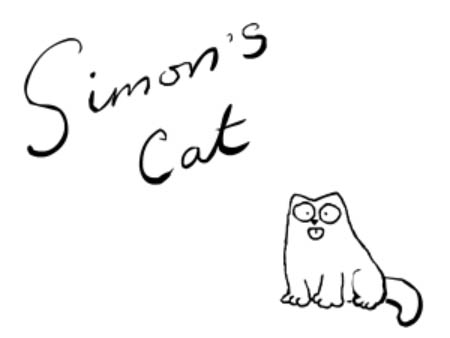 Simon's
Cat